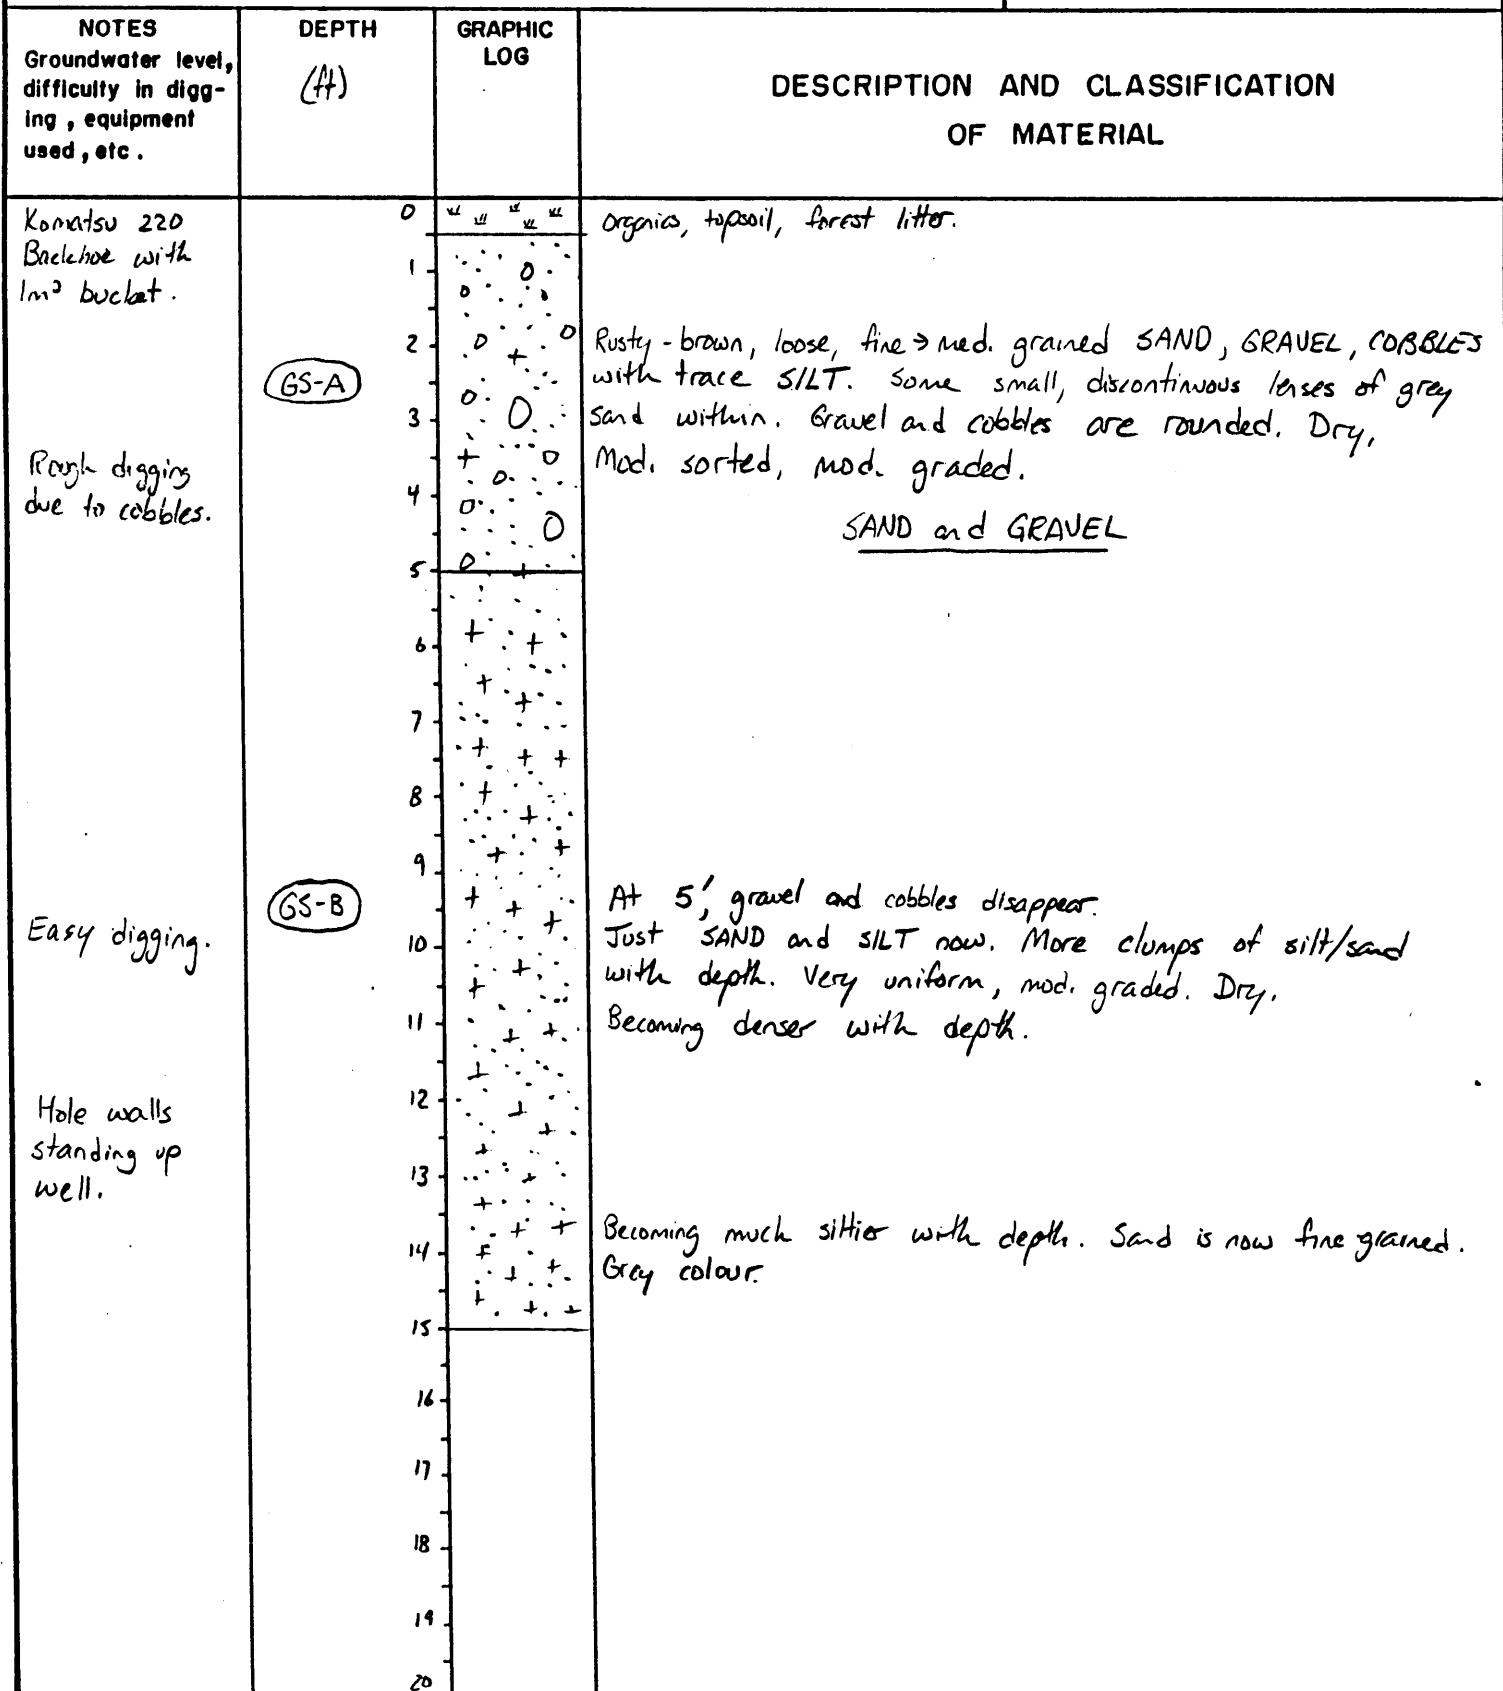 NOTES
Groundwater level,
difficulty in digg-
ing, equipment
used, etc.
DEPTH
(ft)
GRAPHIC
LOG
DESCRIPTION AND CLASSIFICATION
OF MATERIAL
Komatsu 220
Backhoe with
1m³ bucket.
Rough digging
due to cobbles.
Easy digging.
Hole walls
standing up
well.
0
1
2
GS-A
3
4
5
6
7
8
9
GS-B
10
11
12
13
14
15
16
17
18
19
20
Organics, topsoil, forest litter.
Rusty-brown, loose, fine → med. grained SAND, GRAVEL, COBBLES
with trace SILT. Some small, discontinuous lenses of grey
sand within. Gravel and cobbles are rounded. Dry,
Mod. sorted, mod. graded.
SAND and GRAVEL
At 5', gravel and cobbles disappear.
Just SAND and SILT now. More clumps of silt/sand
with depth. Very uniform, mod. graded. Dry.
Becoming denser with depth.
Becoming much siltier with depth. Sand is now fine grained.
Grey colour.